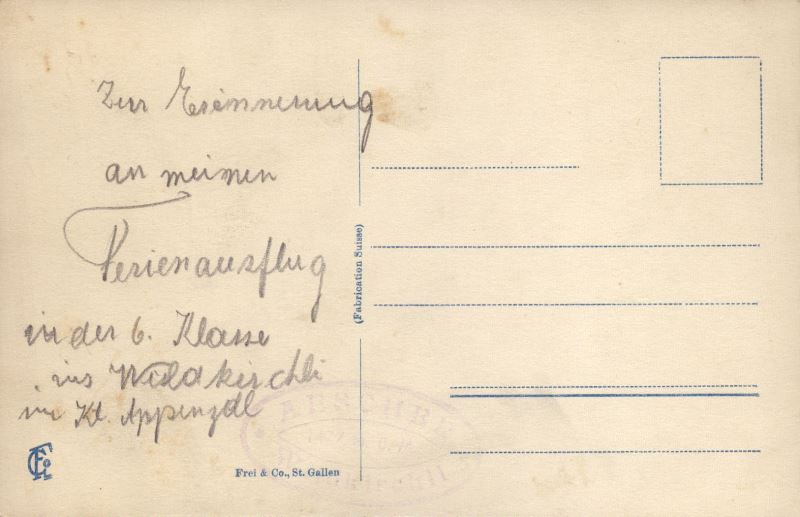 Zur Erinnerung
an meinen
Ferienausflug
in der 6. Klasse
ins Wildkirchli
im Kt. Appenzell
(Fabrication Suisse)
Frei & Co., St. Gallen
AESCHER